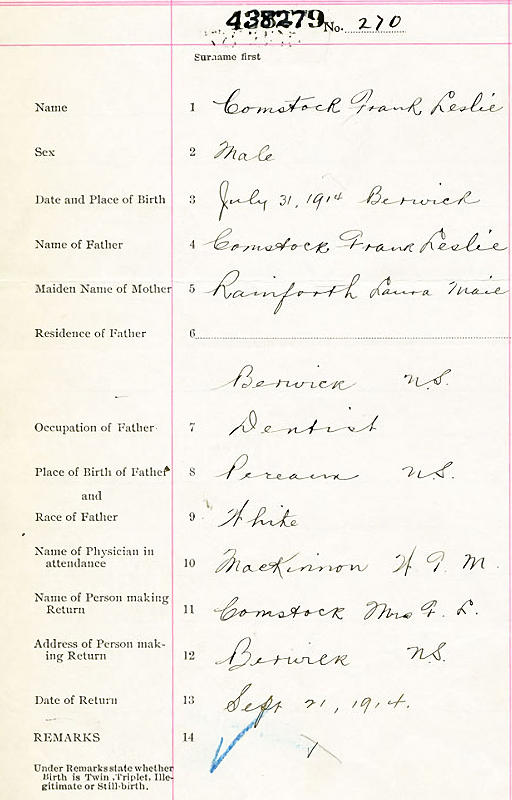 438279 No. 270
Surname first
Name 1 Comstock Frank Leslie
Sex 2 Male
Date and Place of Birth 3 July 31, 1914 Berwick
Name of Father 4 Comstock Frank Leslie
Maiden Name of Mother 5 Rainforth Laura Maie
Residence of Father 6
Berwick N.S.
Occupation of Father 7 Dentist
Place of Birth of Father 8 Pereaux N.S.
and
Race of Father 9 White
Name of Physician in
attendance 10 MacKinnon H. T. M.
Name of Person making
Return 11 Comstock Mrs F. L.
Address of Person mak-
ing Return 12 Berwick N.S.
Date of Return 13 Sept 21, 1914.
REMARKS 14
Under Remarks state whether
Birth is Twin, Triplet, Ille-
gitimate or Still-birth.